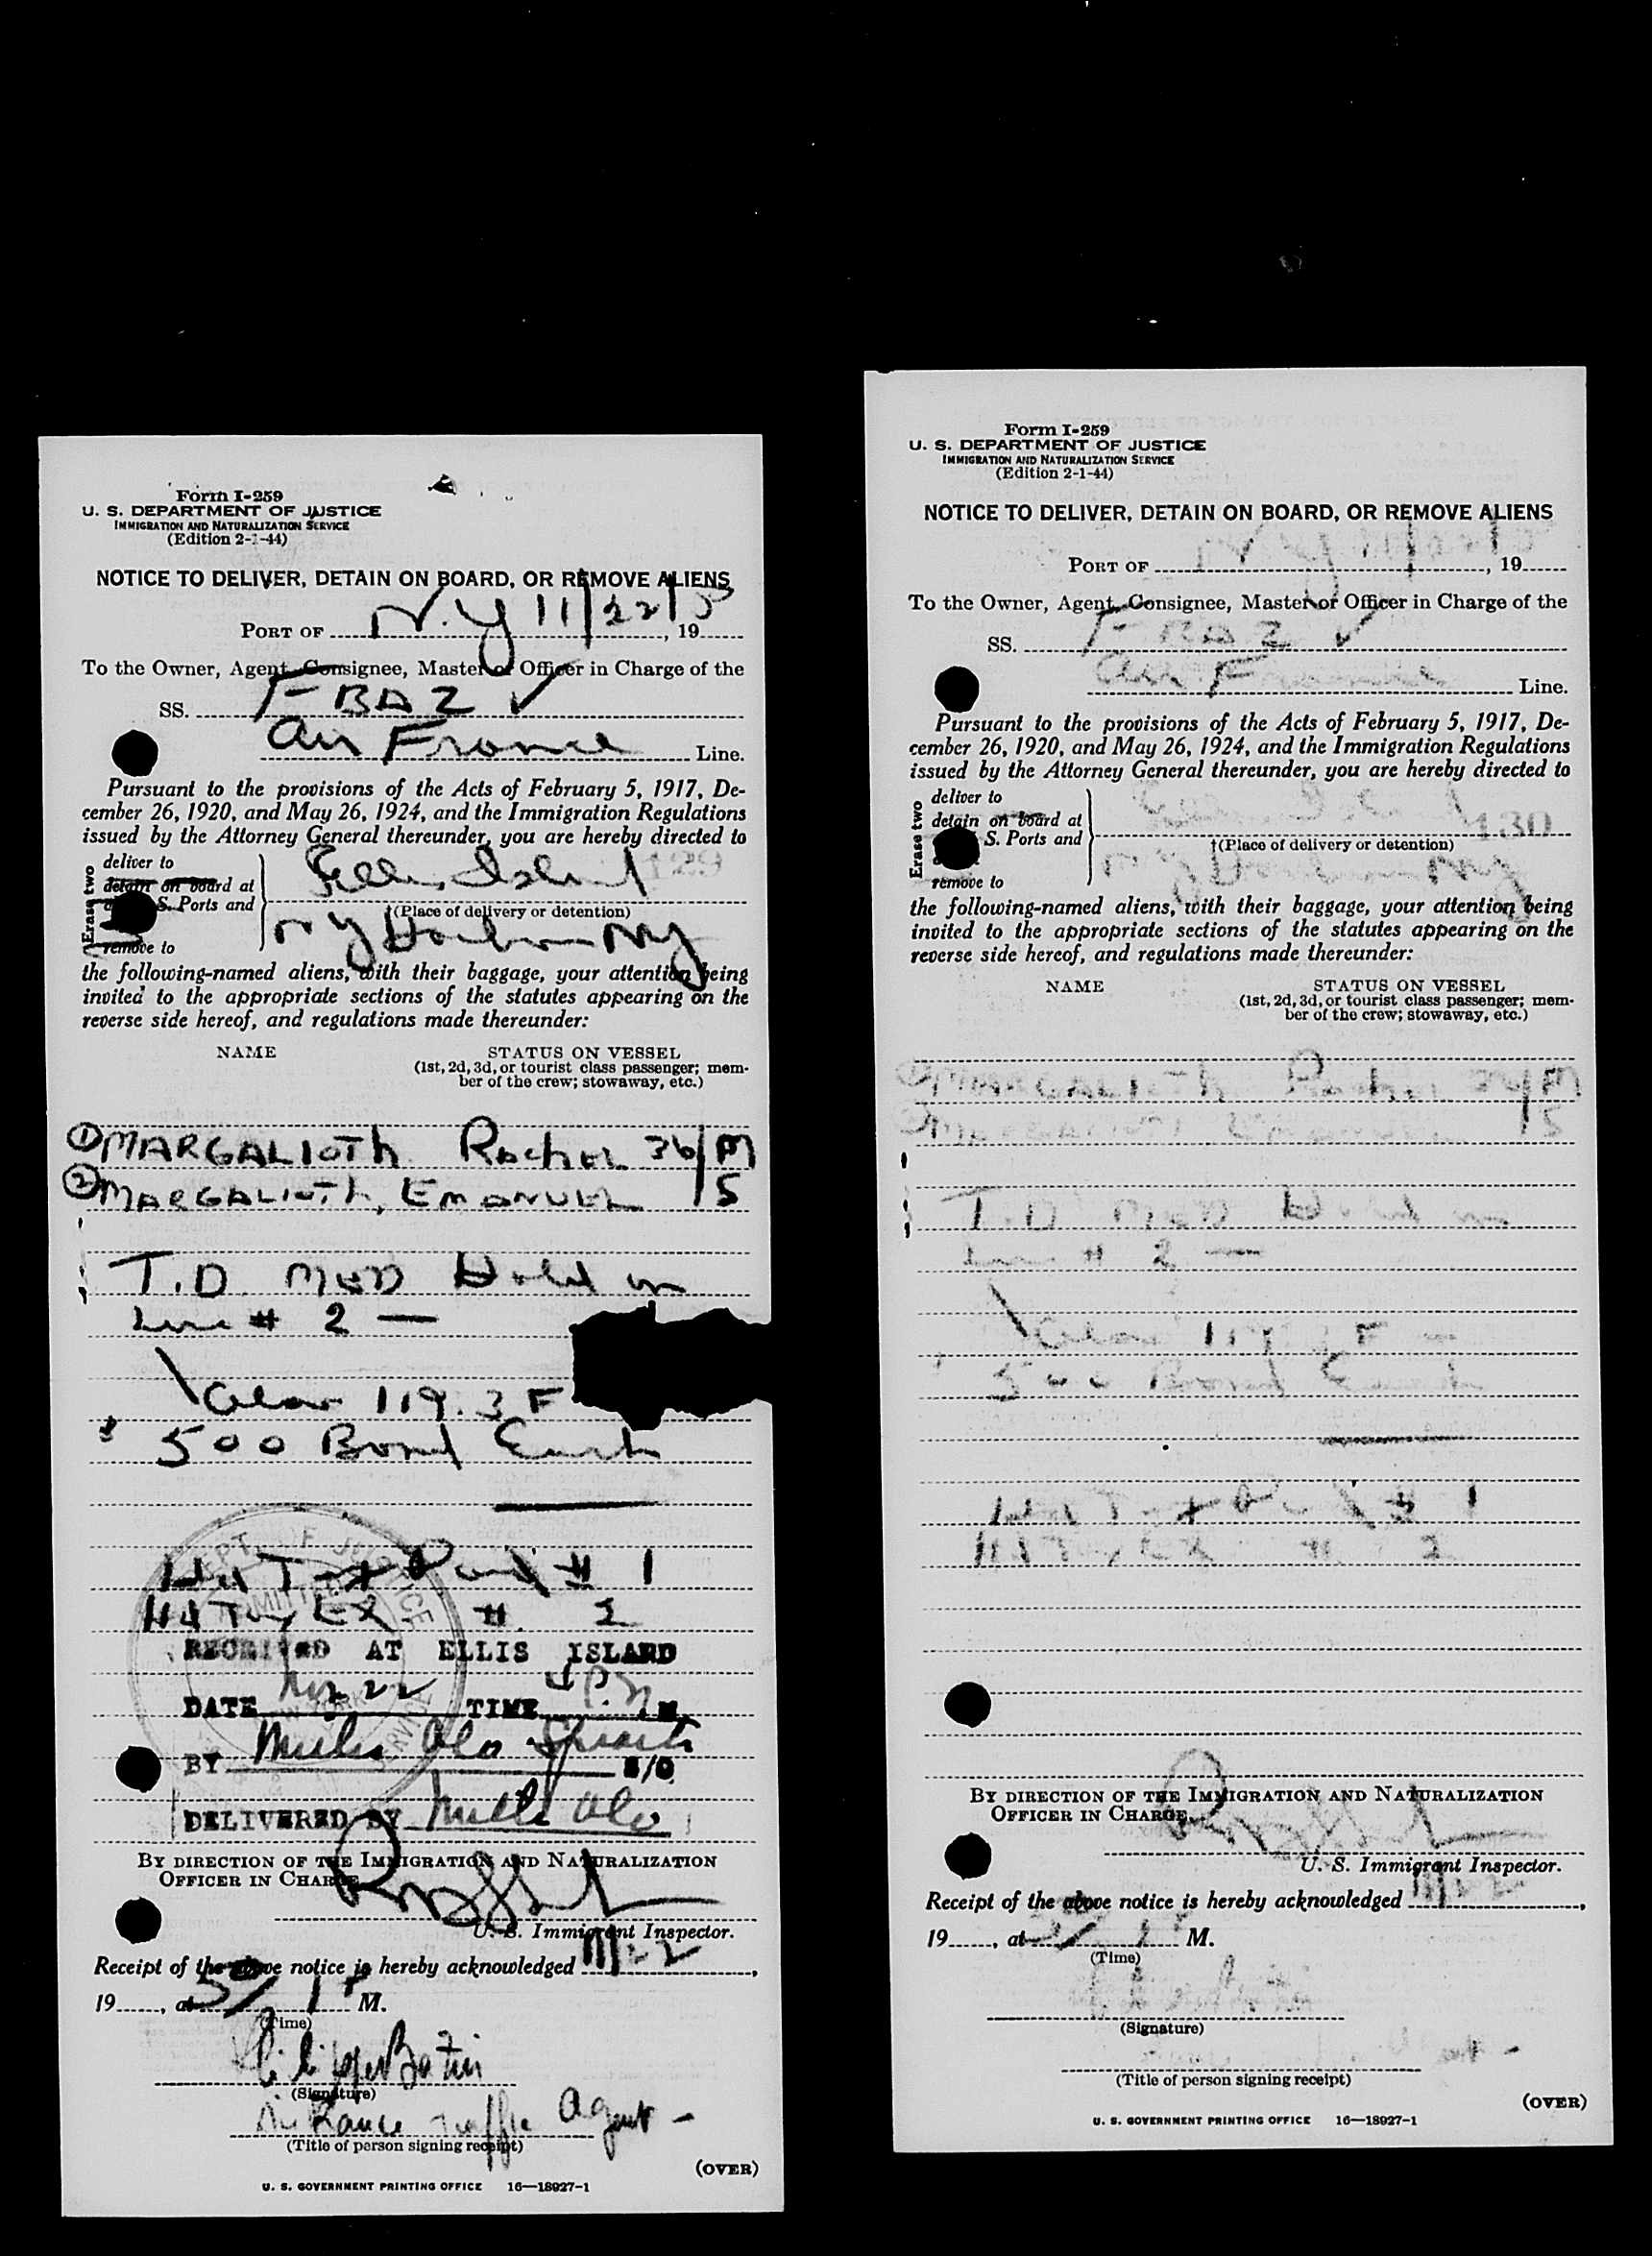 Form I-259
U. S. DEPARTMENT OF JUSTICE
IMMIGRATION AND NATURALIZATION SERVICE
(Edition 2-1-44)
NOTICE TO DELIVER, DETAIN ON BOARD, OR REMOVE ALIENS
PORT OF N.Y 11/22/5 , 19
To the Owner, Agent, Consignee, Master or Officer in Charge of the
SS. F-BAZ ✓
Air France Line.
Pursuant to the provisions of the Acts of February 5, 1917, De-
cember 26, 1920, and May 26, 1924, and the Immigration Regulations
issued by the Attorney General thereunder, you are hereby directed to
Erase two
deliver to
detain on board at
S. Ports and
remove to
Ellis Island 129
†(Place of delivery or detention)
NY Harbor NY
the following-named aliens, with their baggage, your attention being
invited to the appropriate sections of the statutes appearing on the
reverse side hereof, and regulations made thereunder:
NAME STATUS ON VESSEL
(1st, 2d, 3d, or tourist class passenger; mem-
ber of the crew; stowaway, etc.)
① MARGALIOTH Rachel 36/M
② MARGALIOTH, EMANUEL /5
T.D. MED Hold on
Line # 2 —
119.3 F
$ 500 Bond Each
# 1
# 2
RECEIVED AT ELLIS ISLAND
DATE Nov 22 TIME P.M.
BY S/O
DELIVERED BY
BY DIRECTION OF THE IMMIGRATION AND NATURALIZATION
OFFICER IN CHARGE
U. S. Immigrant Inspector.
Receipt of the above notice is hereby acknowledged 11/22 ,
19 , at M.
(Time)
(Signature)
Air France Traffic Agent -
(Title of person signing receipt)
(OVER)
U. S. GOVERNMENT PRINTING OFFICE 16—18927-1
Form I-259
U. S. DEPARTMENT OF JUSTICE
IMMIGRATION AND NATURALIZATION SERVICE
(Edition 2-1-44)
NOTICE TO DELIVER, DETAIN ON BOARD, OR REMOVE ALIENS
PORT OF , 19
To the Owner, Agent, Consignee, Master or Officer in Charge of the
SS. F-BAZ ✓
Air France Line.
Pursuant to the provisions of the Acts of February 5, 1917, De-
cember 26, 1920, and May 26, 1924, and the Immigration Regulations
issued by the Attorney General thereunder, you are hereby directed to
Erase two
deliver to
detain on board at
S. Ports and
remove to
130
†(Place of delivery or detention)
NY Harbor NY
the following-named aliens, with their baggage, your attention being
invited to the appropriate sections of the statutes appearing on the
reverse side hereof, and regulations made thereunder:
NAME STATUS ON VESSEL
(1st, 2d, 3d, or tourist class passenger; mem-
ber of the crew; stowaway, etc.)
MARGALIOTH Rachel 36/M
MARGALIOTH Emanuel /5
T.D MED Hold on
Line # 2 —
500 Bond Each
# 1
# 2
BY DIRECTION OF THE IMMIGRATION AND NATURALIZATION
OFFICER IN CHARGE
U. S. Immigrant Inspector.
Receipt of the above notice is hereby acknowledged 11/22 ,
19 , at M.
(Time)
(Signature)
(Title of person signing receipt)
(OVER)
U. S. GOVERNMENT PRINTING OFFICE 16—18927-1